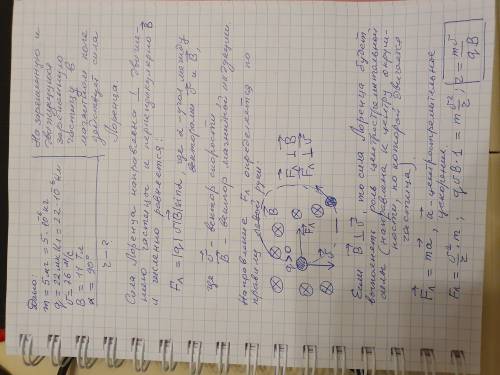 Дано:
m = 5 мг = 5·10⁻⁶ кг
q = 22 мкКл = 22·10⁻⁶ Кл
υ = 26 м/с
B = 11 Тл
α = 90°
r - ?
На заряженную и
движущуюся
заряженную
частицу в
магнитном поле
действует сила
Лоренца.
Сила Лоренца направлена ⊥ движе-
нию частицы и перпендикулярно B⃗
и численно равняется:
Fл = |q| υ B |sinα, где α - угол между
векторами υ⃗ и B⃗,
где υ⃗ - вектор скорости
B⃗ - вектор магнитной индукции
Направление Fл определяется по
правилу левой руки:
B⃗
F⃗л ⊥ B⃗
F⃗л ⊥ υ⃗
q>0
F⃗л
υ⃗
Если B⃗ ⊥ υ⃗, то сила Лоренца будет
выполнять роль центростремительной
силы (направлена к центру окруж-
ности, по которой двигается
частица)
F⃗л = ma⃗, a⃗ - центростремительное
ускорение
Fл = υ²/r · m; qυB·1 = m υ²/r; r = mυ/qB